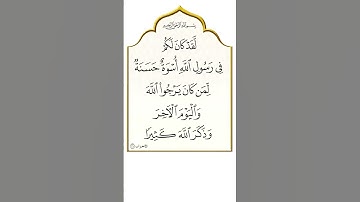 بِسْمِ اللَّهِ الرَّحْمَٰنِ الرَّحِيمِ
لَّقَدْ كَانَ لَكُمْ
فِي رَسُولِ اللَّهِ أُسْوَةٌ حَسَنَةٌ
لِّمَن كَانَ يَرْجُوا اللَّهَ
وَالْيَوْمَ الْآخِرَ
وَذَكَرَ اللَّهَ كَثِيرًا